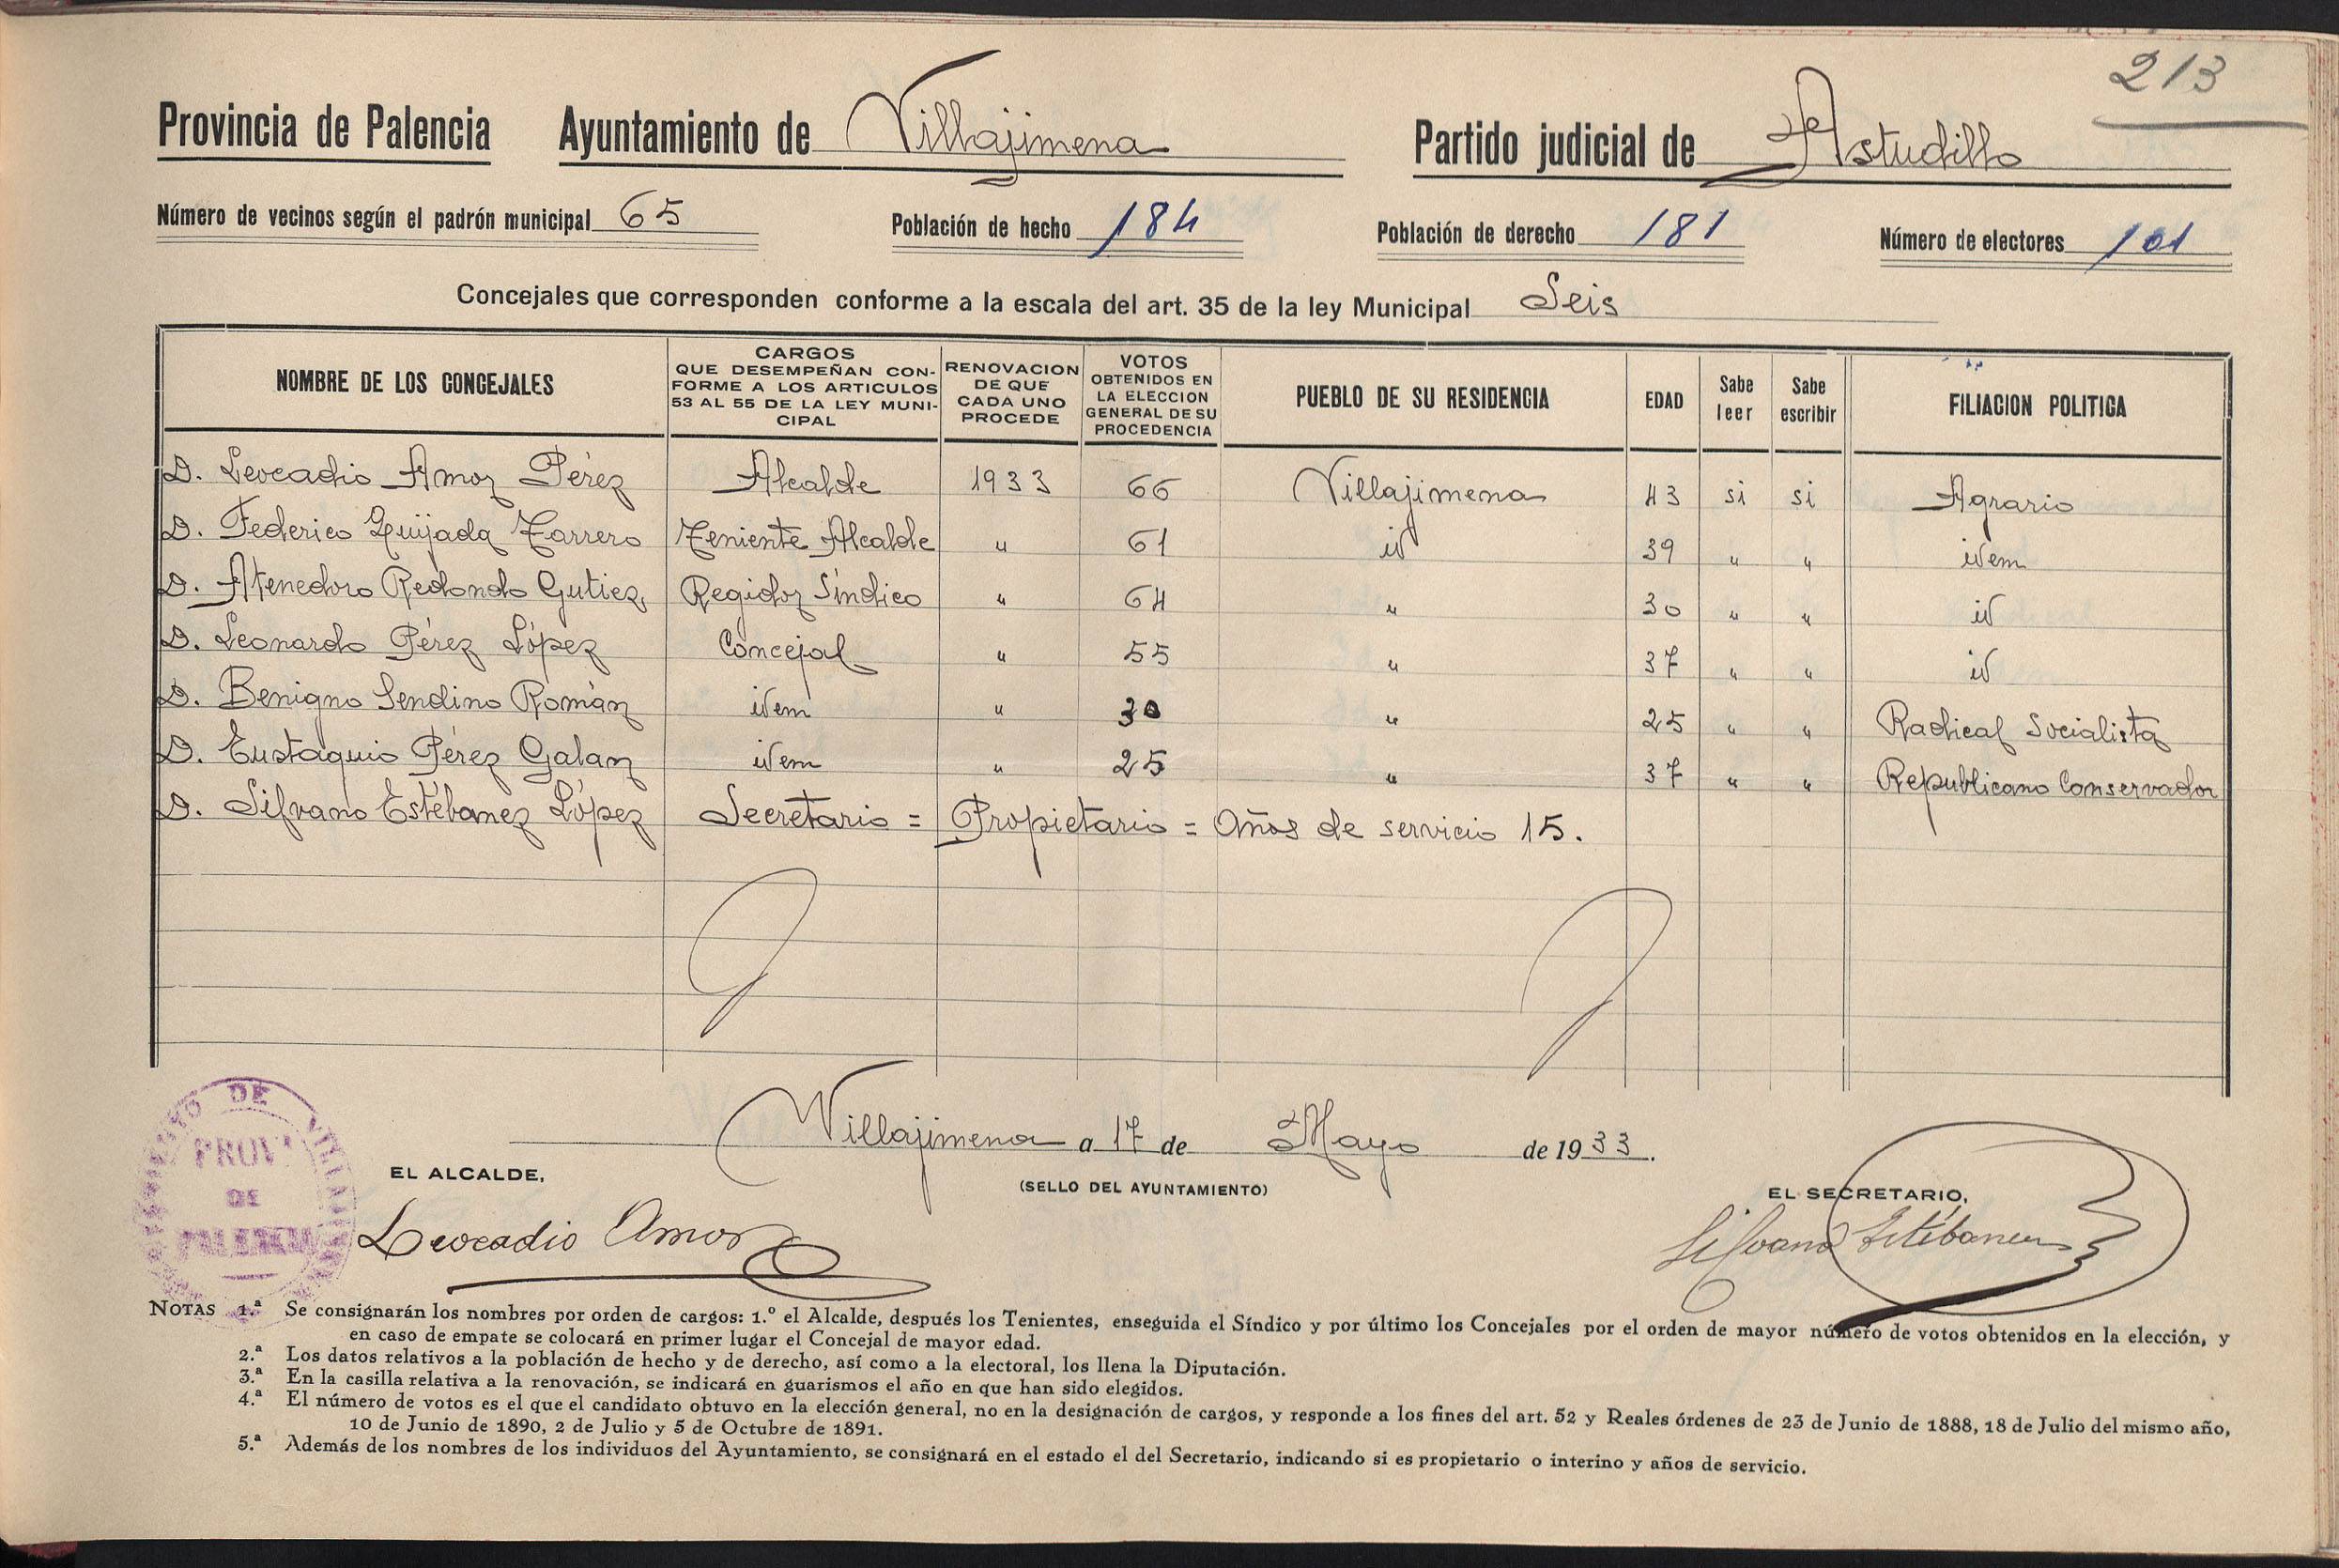 213
Provincia de Palencia Ayuntamiento de Villajimena Partido judicial de Astudillo
Número de vecinos según el padrón municipal 65 Población de hecho 184 Población de derecho 181 Número de electores 101
Concejales que corresponden conforme a la escala del art. 35 de la ley Municipal Seis
NOMBRE DE LOS CONCEJALES CARGOS QUE DESEMPEÑAN CONFORME A LOS ARTICULOS 53 AL 55 DE LA LEY MUNICIPAL RENOVACION DE QUE CADA UNO PROCEDE VOTOS OBTENIDOS EN LA ELECCION GENERAL DE SU PROCEDENCIA PUEBLO DE SU RESIDENCIA EDAD Sabe leer Sabe escribir FILIACION POLITICA
D. Leocadio Amor Pérez Alcalde 1933 66 Villajimena 43 si si Agrario
D. Federico Quijada Tarrero Teniente Alcalde " 61 id 39 " " idem
D. Atenedoro Redondo Gutiez, Regidor Síndico " 64 " 30 " " id
D. Leonardo Pérez López Concejal " 55 " 37 " " id
D. Benigno Sendino Román idem " 30 " 25 " " Radical Socialista
D. Eustaquio Pérez Galan idem " 25 " 37 " " Republicano Conservador
D. Silvano Estébanez López Secretario = Propietario = Años de servicio 15.
Villajimena a 17 de Mayo de 1933.
EL ALCALDE, (SELLO DEL AYUNTAMIENTO) EL SECRETARIO,
Leocadio Amor Silvano Estébanez
DE
PROVª
DE
PALENCIA
NOTAS 1.ª Se consignarán los nombres por orden de cargos: 1.º el Alcalde, después los Tenientes, enseguida el Síndico y por último los Concejales por el orden de mayor número de votos obtenidos en la elección, y
en caso de empate se colocará en primer lugar el Concejal de mayor edad.
2.ª Los datos relativos a la población de hecho y de derecho, así como a la electoral, los llena la Diputación.
3.ª En la casilla relativa a la renovación, se indicará en guarismos el año en que han sido elegidos.
4.ª El número de votos es el que el candidato obtuvo en la elección general, no en la designación de cargos, y responde a los fines del art. 52 y Reales órdenes de 23 de Junio de 1888, 18 de Julio del mismo año,
10 de Junio de 1890, 2 de Julio y 5 de Octubre de 1891.
5.ª Además de los nombres de los individuos del Ayuntamiento, se consignará en el estado el del Secretario, indicando si es propietario o interino y años de servicio.